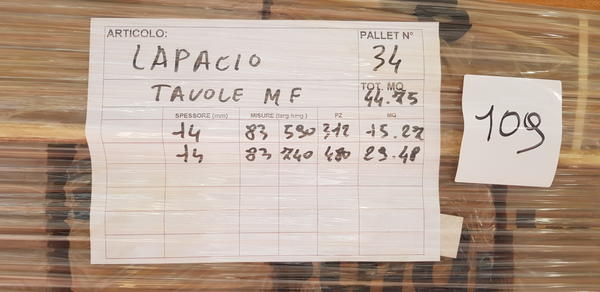 ARTICOLO: PALLET N°
LAPACIO 34
TAVOLE MF TOT. MQ 44.75
SPESSORE (mm) MISURE (larg.lung.) PZ MQ
14 83 590 312 15.27
14 83 740 480 29.48
109